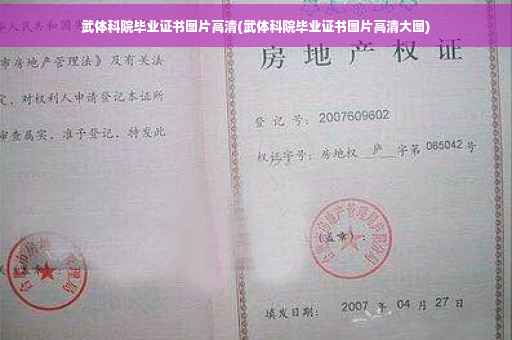 武体科院毕业证书图片高清(武体科院毕业证书图片高清大图)
人民共和国
市房地产管理法》及有关法
定，对权利人申请登记本证所
审查属实，准予登记，特发此
房地产权证
登记号：2007609602
权证字号：房地权 庐 字第 065042 号
(盖章)：
填发日期：2007 年 04 月 27 日